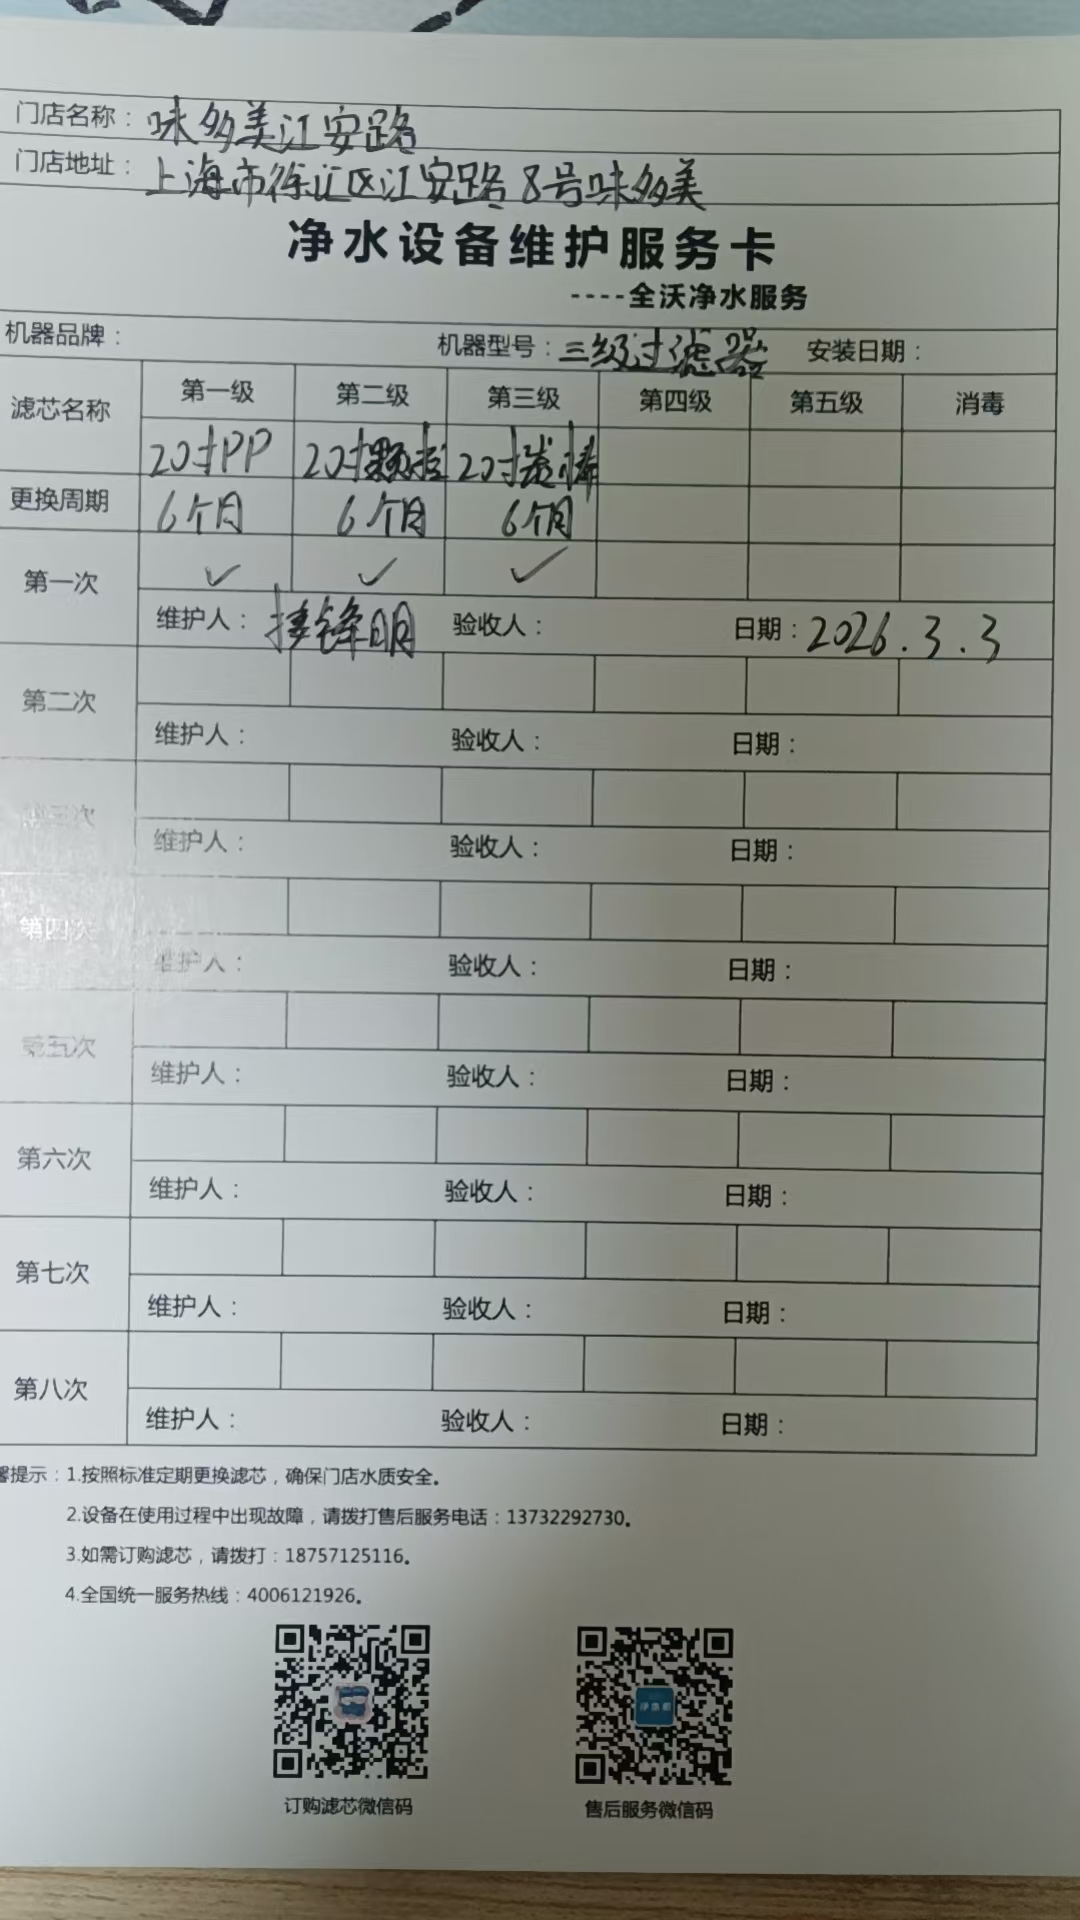 门店名称：味多美江安路
门店地址：上海市徐汇区江安路8号味多美
净水设备维护服务卡
----全沃净水服务
机器品牌： 机器型号：三级过滤器 安装日期：
滤芯名称 第一级 第二级 第三级 第四级 第五级 消毒
20寸PP 20寸颗拉 20寸炭棒
更换周期 6个月 6个月 6个月
第一次 ✓ ✓ ✓
维护人：锋明 验收人： 日期：2026.3.3
第二次
维护人： 验收人： 日期：
第三次
维护人： 验收人： 日期：
第四次
维护人： 验收人： 日期：
第五次
维护人： 验收人： 日期：
第六次
维护人： 验收人： 日期：
第七次
维护人： 验收人： 日期：
第八次
维护人： 验收人： 日期：
提示：1.按照标准定期更换滤芯，确保门店水质安全。
2.设备在使用过程中出现故障，请拨打售后服务电话：13732292730。
3.如需订购滤芯，请拨打：18757125116。
4.全国统一服务热线：4006121926。
订购滤芯微信码 售后服务微信码